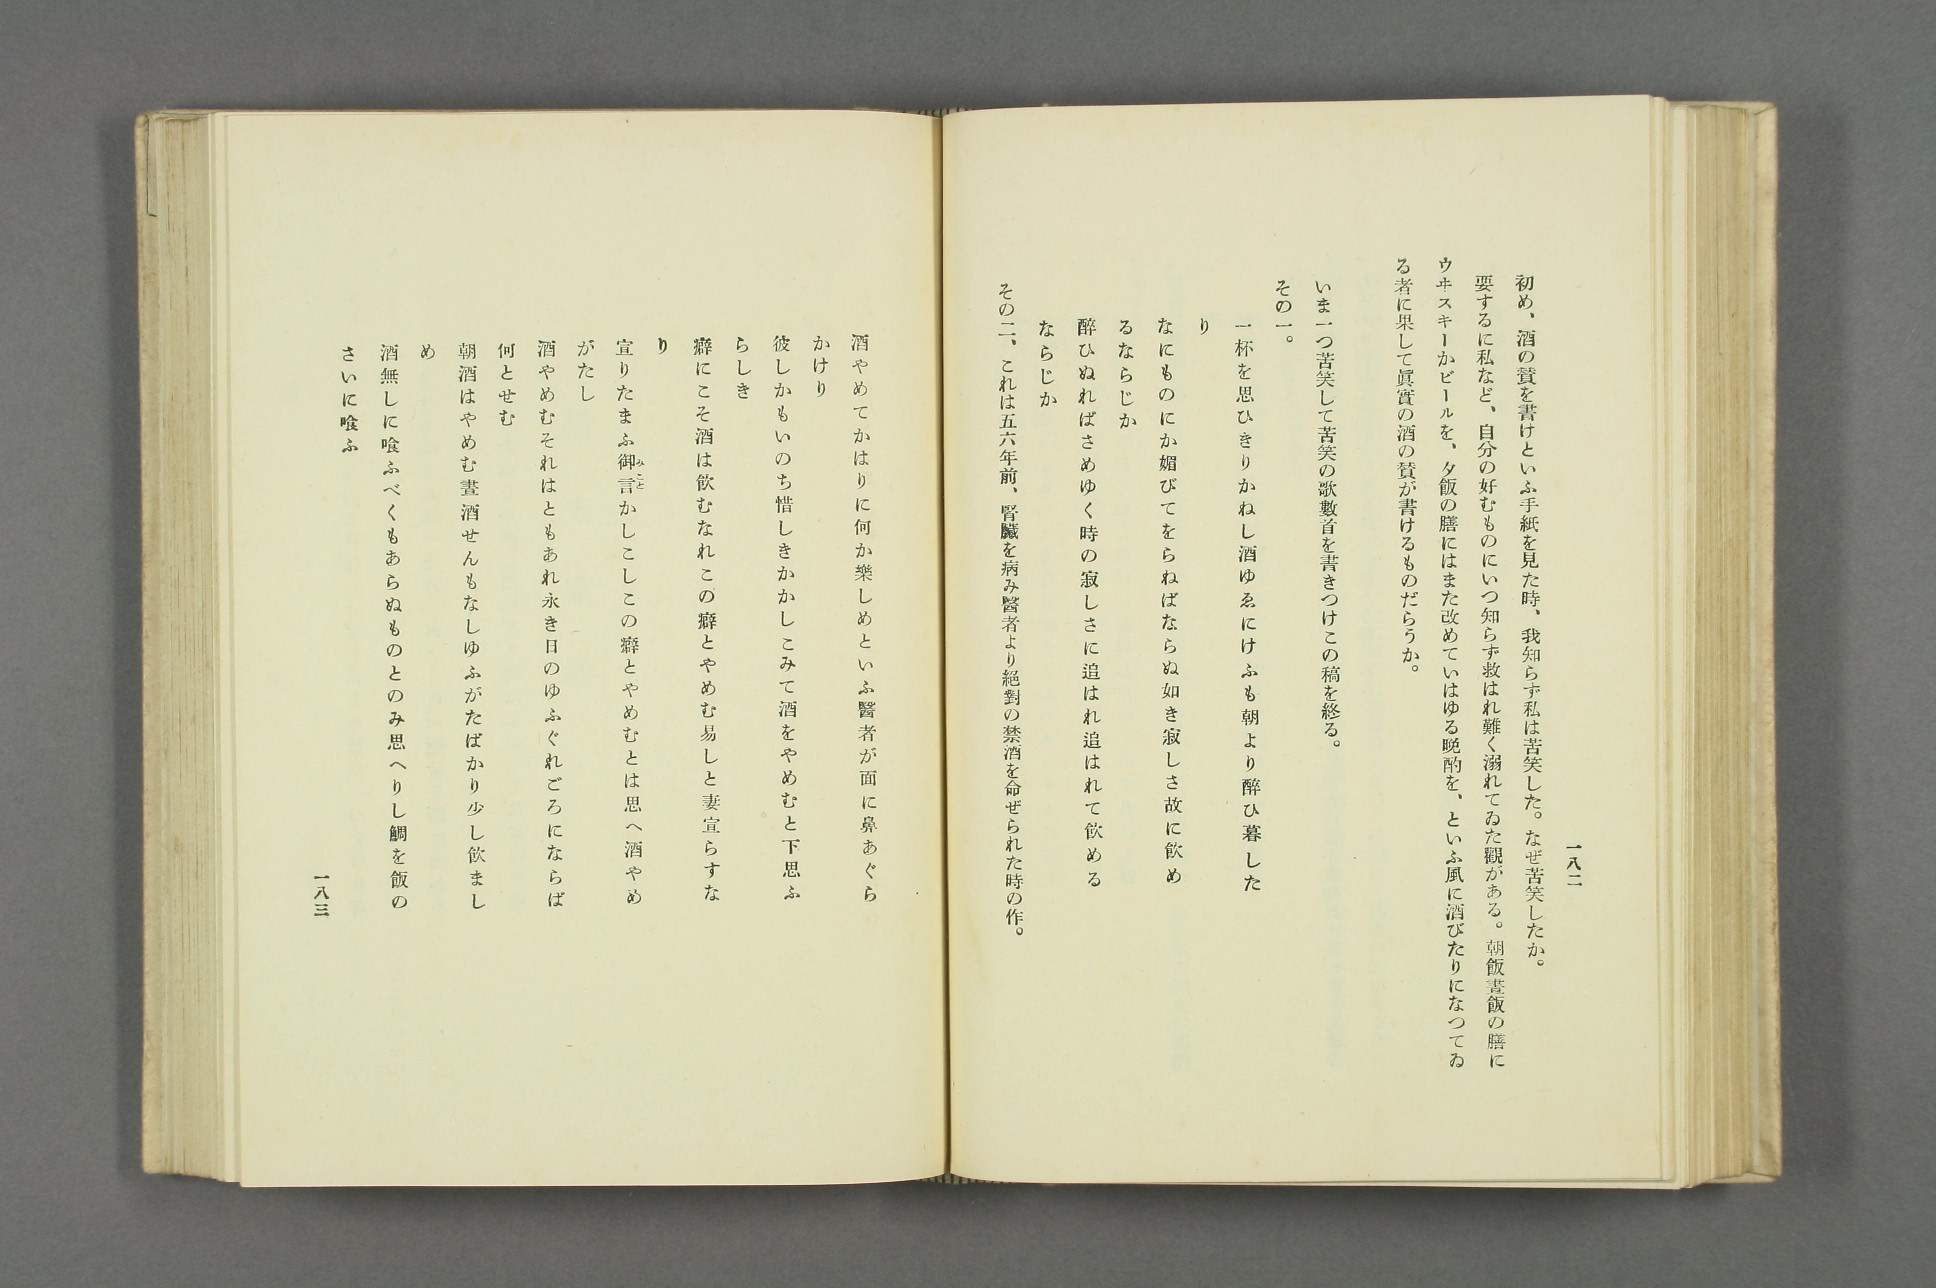 初め、酒の賛を書けといふ手紙を見た時、我知らず私は苦笑した。なぜ苦笑したか。
要するに私など、自分の好むものにいつ知らず救はれ難く溺れてゐた觀がある。朝飯晝飯の膳に
ウヰスキーかビールを、夕飯の膳にはまた改めていはゆる晩酌を、といふ風に酒びたりになつてゐ
る者に果して眞實の酒の賛が書けるものだらうか。
いま一つ苦笑して苦笑の歌數首を書きつけこの稿を終る。
その一。
一杯を思ひきりかねし酒ゆゑにけふも朝より醉ひ暮した
り
なにものにか媚びてをらねばならぬ如き寂しさ故に飮め
るならじか
醉ひぬればさめゆく時の寂しさに追はれ追はれて飮める
ならじか
その二、これは五六年前、腎臟を病み醫者より絕對の禁酒を命ぜられた時の作。
一八二
酒やめてかはりに何か樂しめといふ醫者が面に鼻あぐら
かけり
彼しかもいのち惜しきかかしこみて酒をやめむと下思ふ
らしき
癖にこそ酒は飮むなれこの癖とやめむ易しと妻宣らすな
り
宣りたまふ御言かしこしこの癖とやめむとは思へ酒やめ
みこと
がたし
酒やめむそれはともあれ永き日のゆふぐれごろにならば
何とせむ
朝酒はやめむ晝酒せんもなしゆふがたばかり少し飮まし
め
酒無しに喰ふべくもあらぬものとのみ思へりし鯛を飯の
さいに喰ふ
一八三